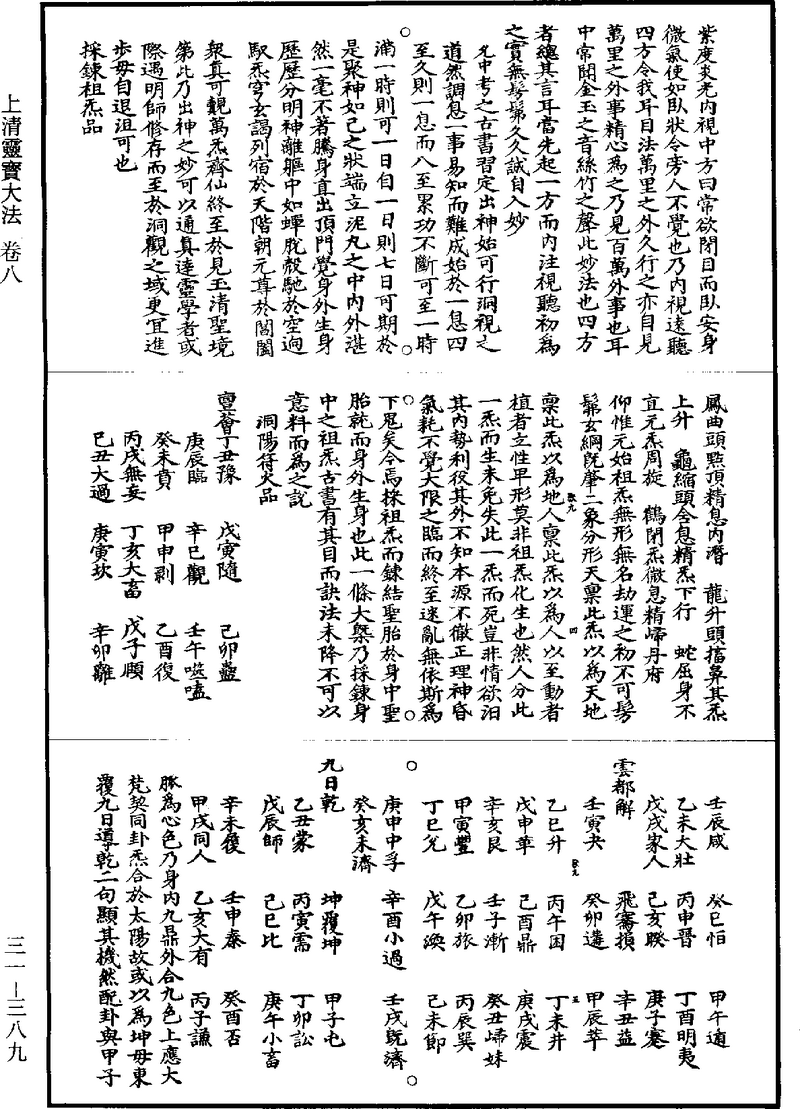 上清靈寶大法 卷八
三一—三八九
紫度炎光內視中方曰常欲閉目而臥安身
微氣使如臥狀令旁人不覺也乃內視遠聽
四方令我耳目法萬里之外久行之亦自見
萬里之外事精心為之乃見百萬外事也耳
中常聞金玉之音絲竹之聲此妙法也四方
者總其言耳當先起一方而內注視聽初為
之實無髣髴久久誠自入妙
允中考之古書習定出神始可行洞視之
道然調息一事易知而難成始於一息四
至久則一息而八至累功不斷可至一時
滿一時則可一日自一日則七日可期於
是聚神如己之狀端立泥丸之中內外湛
然一毫不著騰身直出頂門覺身外生身
歷歷分明神離軀中如蟬脫殼馳於空迥
馭炁穹玄謁列宿於天階朝元尊於閶闔
衆真可覩萬炁齊仙終至於見玉清聖境
第此乃出神之妙可以通真達靈學者或
際遇明師修存而至於洞觀之域更宜進
步毋自退沮可也
採鍊祖炁品
鳳曲頭點頂精息內潛　龍升頭搐鼻其炁
上升　龜縮頭含息精炁下行　蛇屈身不
直元炁周旋　鶴閉炁微息精歸丹府
仰惟元始祖炁無形無名劫運之初不可髣
髴玄綱既肇二象分形天稟此炁以為天地
稟此炁以為地人稟此炁以為人以至動者
植者立性畀形莫非祖炁化生也然人分此
一炁而生未免失此一炁而死豈非情欲汩
其內勢利役其外不知本源不徹正理神昏
氣耗不覺大限之臨而終至迷亂無依斯為
下鬼矣今焉採祖炁而鍊結聖胎於身中聖
胎就而身外生身也此一條大槩乃採鍊身
中之祖炁古書有其目而訣法未降不可以
意料而為之說
洞陽符火品
亶薈丁丑豫　戊寅隨　己卯蠱
庚辰臨　辛巳觀　壬午噬嗑
癸未賁　甲申剝　乙酉復
丙戌無妄　丁亥大畜　戊子頤
己丑大過　庚寅坎　辛卯離
壬辰咸　癸巳恒　甲午遁
乙未大壯　丙申晉　丁酉明夷
戊戌家人　己亥睽　庚子蹇
雲都解　飛騫損　辛丑益
壬寅夬　癸卯遘　甲辰萃
乙巳升　丙午困　丁未井
戊申革　己酉鼎　庚戌震
辛亥艮　壬子漸　癸丑歸妹
甲寅豐　乙卯旅　丙辰巽
丁巳兌　戊午渙　己未節
庚申中孚　辛酉小過　壬戌既濟
癸亥未濟
九日乾　坤覆坤　甲子屯
乙丑蒙　丙寅需　丁卯訟
戊辰師　己巳比　庚午小畜
辛未履　壬申泰　癸酉否
甲戌同人　乙亥大有　丙子謙
脉為心色乃身內九鼎外合九色上應大
梵契同卦炁合於太陽故或以為坤毋東
覆九日導乾二句顯其機然配卦與甲子